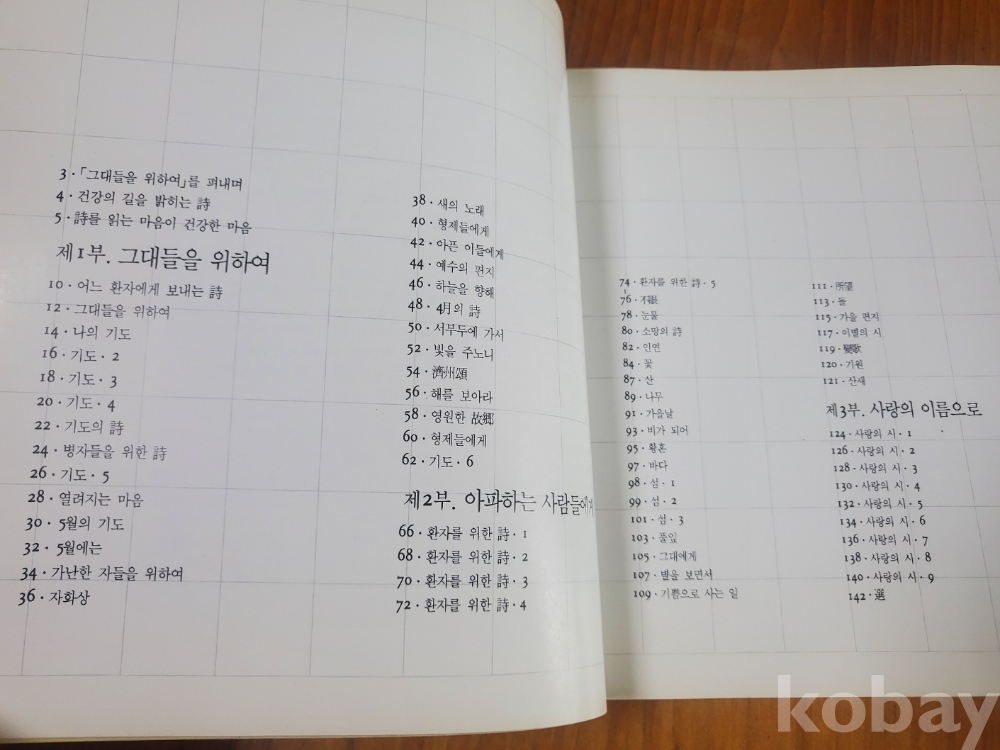 3 · 「그대들을 위하여」를 펴내며
4 · 건강의 길을 밝히는 詩
5 · 詩를 읽는 마음이 건강한 마음
제1부. 그대들을 위하여
10 · 어느 환자에게 보내는 詩
12 · 그대들을 위하여
14 · 나의 기도
16 · 기도 · 2
18 · 기도 · 3
20 · 기도 · 4
22 · 기도의 詩
24 · 병자들을 위한 詩
26 · 기도 · 5
28 · 열려지는 마음
30 · 5월의 기도
32 · 5월에는
34 · 가난한 자들을 위하여
36 · 자화상
38 · 새의 노래
40 · 형제들에게
42 · 아픈 이들에게
44 · 예수의 편지
46 · 하늘을 향해
48 · 4月의 詩
50 · 서부두에 가서
52 · 빛을 주노니
54 · 濟州頌
56 · 해를 보아라
58 · 영원한 故鄕
60 · 형제들에게
62 · 기도 · 6
제2부. 아파하는 사람들에게
66 · 환자를 위한 詩 · 1
68 · 환자를 위한 詩 · 2
70 · 환자를 위한 詩 · 3
72 · 환자를 위한 詩 · 4
74 · 환자를 위한 詩 · 5
76 · 不眠
78 · 눈물
80 · 소망의 詩
82 · 인연
84 · 꽃
87 · 산
89 · 나무
91 · 가을날
93 · 비가 되어
95 · 황혼
97 · 바다
98 · 섬 · 1
99 · 섬 · 2
101 · 섬 · 3
103 · 풀잎
105 · 그대에게
107 · 별을 보면서
109 · 기쁨으로 사는 일
111 · 所望
113 · 돌
115 · 가을 편지
117 · 이별의 시
119 · 戀歌
120 · 기원
121 · 산새
제3부. 사랑의 이름으로
124 · 사랑의 시 · 1
126 · 사랑의 시 · 2
128 · 사랑의 시 · 3
130 · 사랑의 시 · 4
132 · 사랑의 시 · 5
134 · 사랑의 시 · 6
136 · 사랑의 시 · 7
138 · 사랑의 시 · 8
140 · 사랑의 시 · 9
142 · 選
kobay